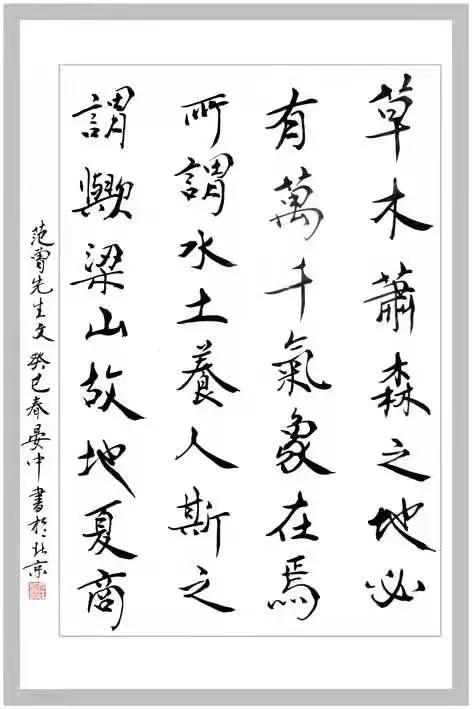 草木蕭森之地必
有萬千氣象在焉
所謂水土養人斯之
謂歟梁山故地夏商
范曾先生文癸巳春晏中書於北京